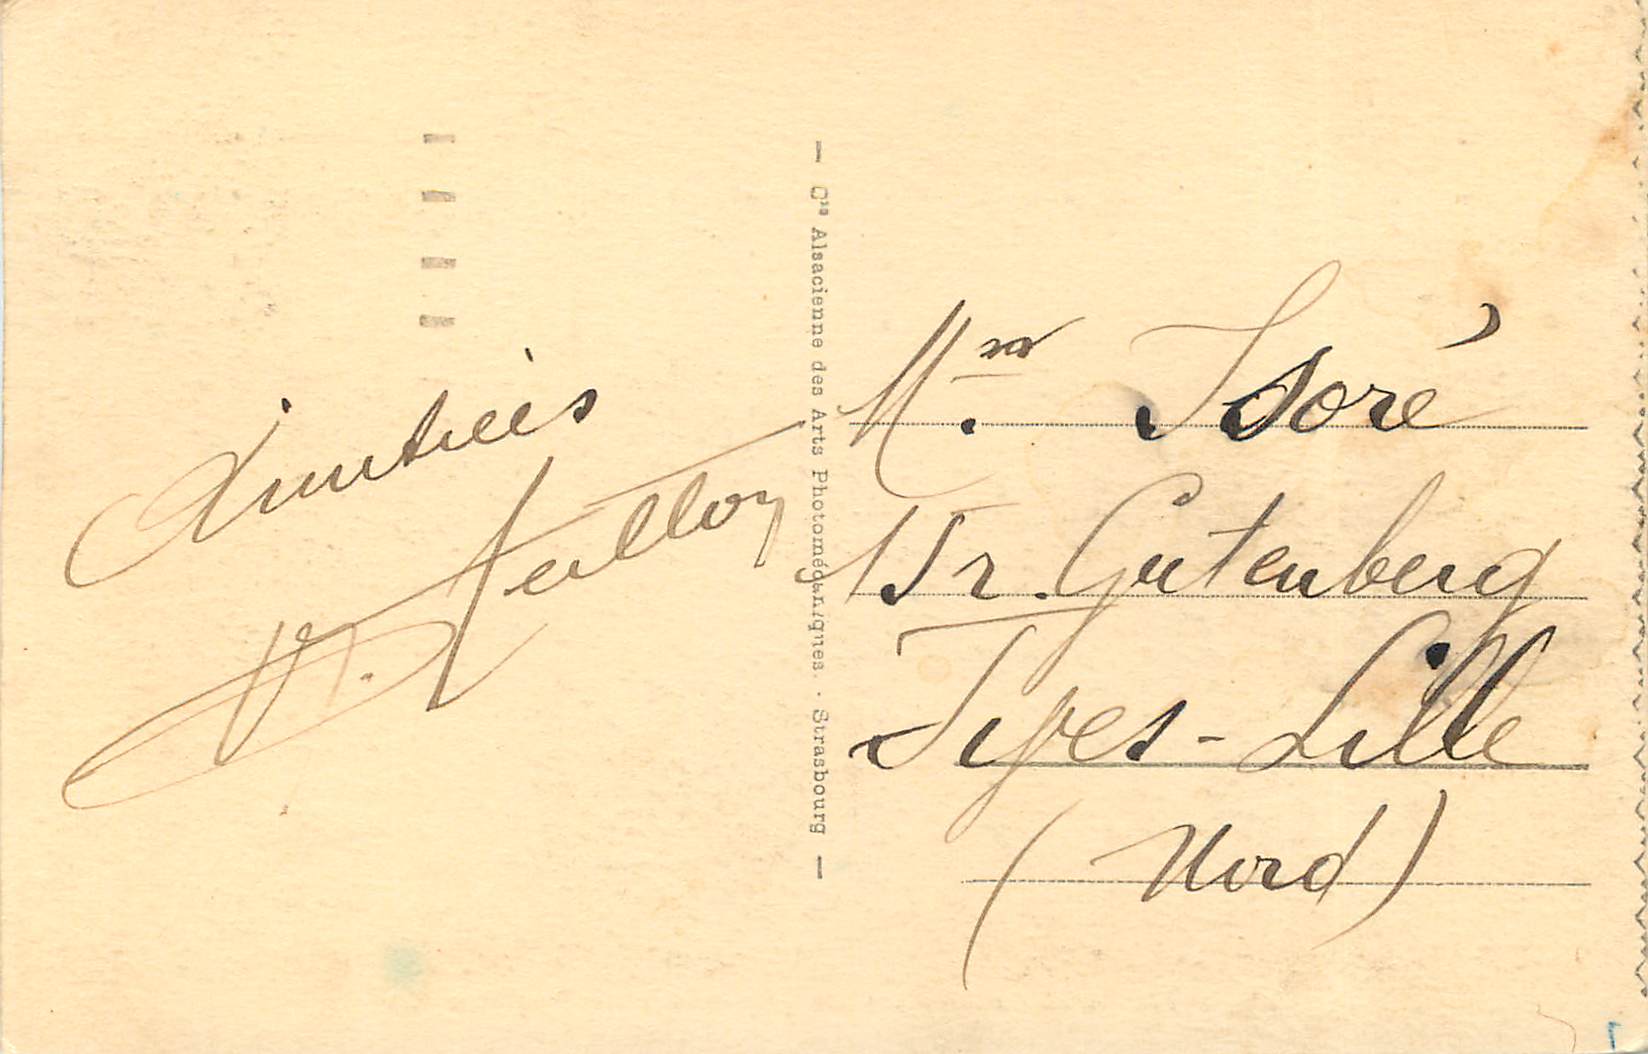 Amitiés
— Cie Alsacienne des Arts Photomécaniques. - Strasbourg —
Mr. Isoré
15 r. Gutenberg
Lille
(Nord)